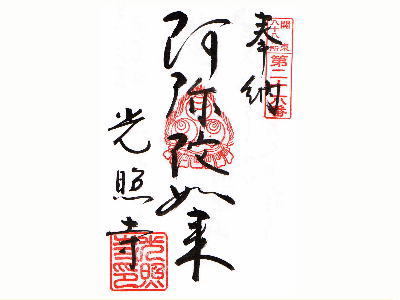 奉納
関東
八十八ヶ所
第二十六番
阿弥陀如来
光照寺
光照寺印